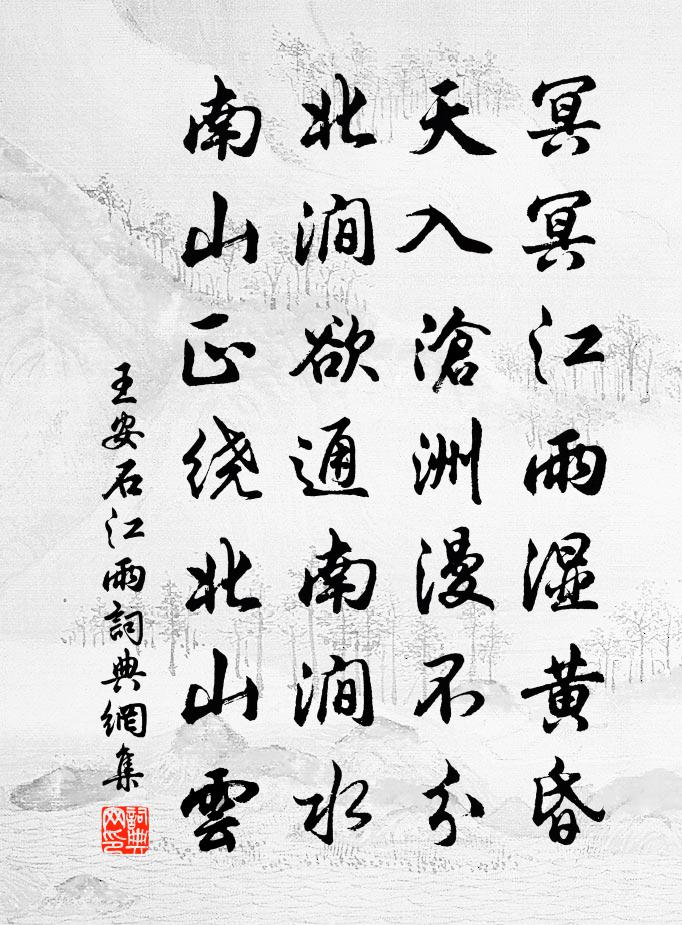 冥冥江雨湿黄昏
天入滄洲漫不分
北澗欲通南澗水
南山正绕北山雲
王安石江雨詞典網集
詞典网印